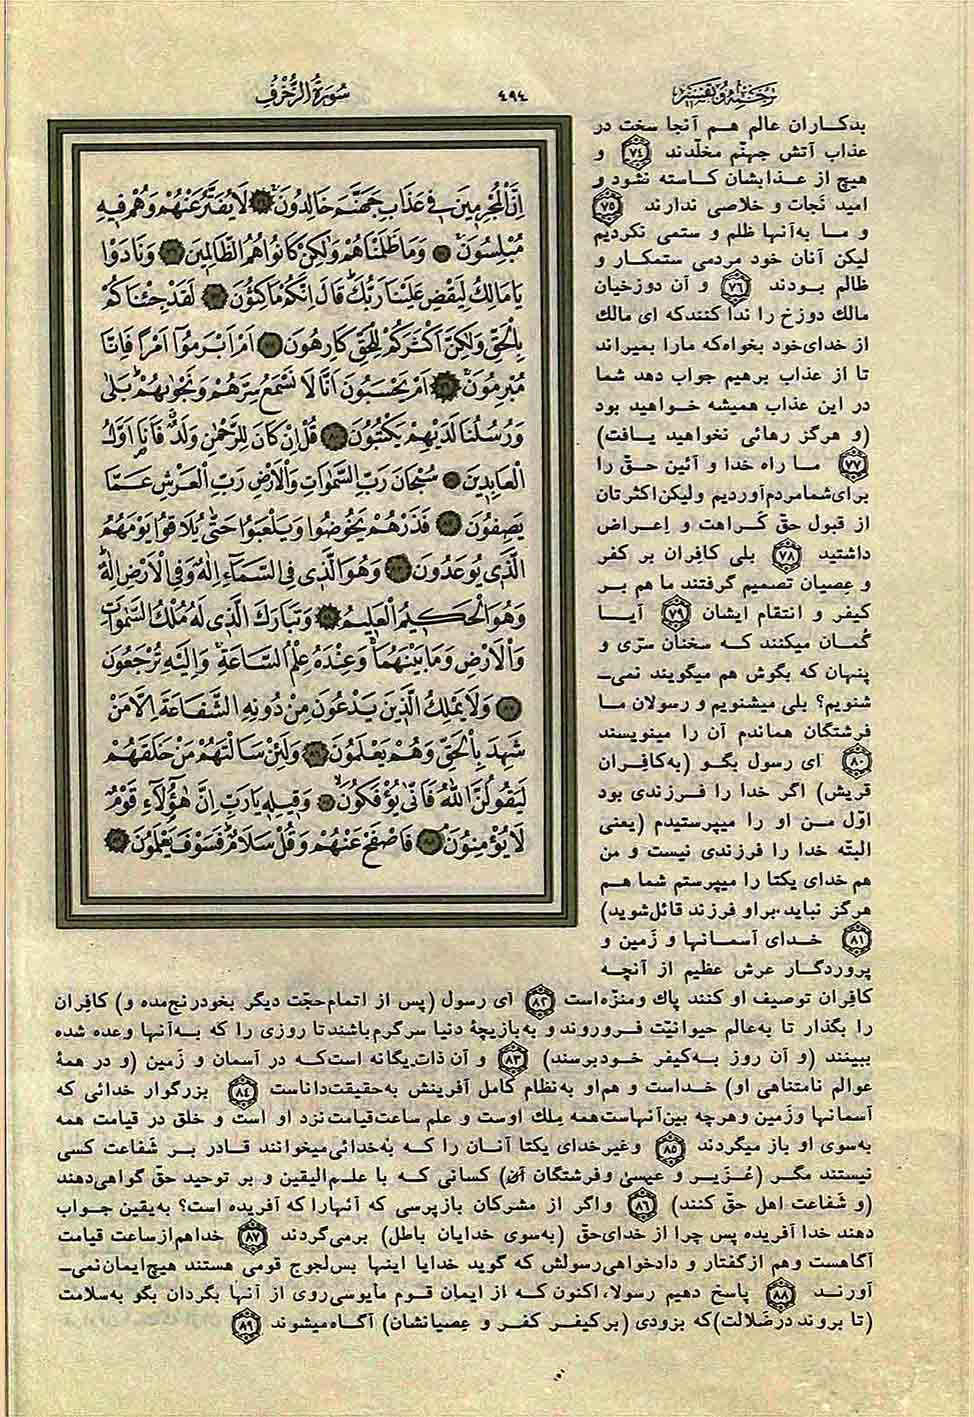 ترجمه و تفسیر
٤٩٤
سورة الزّخرف
اِنَّ الْمُجْرِمینَ فی عَذابِ جَهَنَّمَ خالِدُونَ ٧٤ لا یُفَتَّرُ عَنْهُمْ وَ هُمْ فیهِ
مُبْلِسُونَ ٧٥ وَ ما ظَلَمْناهُمْ وَلٰکِنْ کانُوا هُمُ الظّالِمینَ ٧٦ وَ نادَوْا
یا مالِكُ لِیَقْضِ عَلَیْنا رَبُّكَ قالَ اِنَّکُمْ ماکِثُونَ ٧٧ لَقَدْ جِئْناکُمْ
بِالْحَقِّ وَلٰکِنَّ اَکْثَرَکُمْ لِلْحَقِّ کارِهُونَ ٧٨ اَمْ اَبْرَمُوٓا اَمْراً فَاِنّا
مُبْرِمُونَ ٧٩ اَمْ یَحْسَبُونَ اَنّا لا نَسْمَعُ سِرَّهُمْ وَ نَجْوٰیهُمْ بَلٰی
وَ رُسُلُنا لَدَیْهِمْ یَکْتُبُونَ ٨٠ قُلْ اِنْ کانَ لِلرَّحْمٰنِ وَلَدٌ فَاَنَا اَوَّلُ
الْعابِدینَ ٨١ سُبْحانَ رَبِّ السَّمٰواتِ وَالْاَرْضِ رَبِّ الْعَرْشِ عَمّا
یَصِفُونَ ٨٢ فَذَرْهُمْ یَخُوضُوا وَ یَلْعَبُوا حَتّٰی یُلاقُوا یَوْمَهُمُ
الَّذی یُوعَدُونَ ٨٣ وَ هُوَ الَّذی فِی السَّمآءِ اِلٰهٌ وَ فِی الْاَرْضِ اِلٰهٌ
وَ هُوَ الْحَکیمُ الْعَلیمُ ٨٤ وَ تَبارَكَ الَّذی لَهُ مُلْكُ السَّمٰواتِ
وَالْاَرْضِ وَ ما بَیْنَهُما وَ عِنْدَهُ عِلْمُ السّاعَةِ وَ اِلَیْهِ تُرْجَعُونَ
٨٥ وَلا یَمْلِكُ الَّذینَ یَدْعُونَ مِنْ دُونِهِ الشَّفاعَةَ اِلّا مَنْ
شَهِدَ بِالْحَقِّ وَ هُمْ یَعْلَمُونَ ٨٦ وَ لَئِنْ سَاَلْتَهُمْ مَنْ خَلَقَهُمْ
لَیَقُولُنَّ اللّٰهُ فَاَنّٰی یُؤْفَکُونَ ٨٧ وَ قیلِهِ یا رَبِّ اِنَّ هٰٓؤُلآءِ قَوْمٌ
لا یُؤْمِنُونَ ٨٨ فَاصْفَحْ عَنْهُمْ وَ قُلْ سَلامٌ فَسَوْفَ یَعْلَمُونَ ٨٩
بدکاران عالم هم آنجا سخت در
عذاب آتش جهنّم مخلّدند ٧٤ و
هیچ از عذابشان کاسته نشود و
امید نَجات و خلاصی ندارند ٧٥
و ما به‌آنها ظلم و ستمی نکردیم
لیکن آنان خود مردمی ستمکار و
ظالم بودند ٧٦ و آن دوزخیان
مالك دوزخ را ندا کنندکه ای مالك
از خدای‌خود بخواه‌که مارا بمیراند
تا از عذاب برهیم جواب دهد شما
در این عذاب همیشه خواهید بود
(و هرگز رهائی نخواهید یافت)
٧٧ ما راه خدا و آئین حقّ را
برای‌شمامردم‌آوردیم ولیکن‌اکثرتان
از قبول حقّ کَراهت و اِعراض
داشتید ٧٨ بلی کافِران بر کفر
و عِصیان تصمیم گرفتند ما هم بر
کیفر و انتقام ایشان ٧٩ آیا
گمان میکنند که سخنان سرّی و
پنهان که بگوش هم میگویند نمی‌ـ
شنویم؟ بلی میشنویم و رسولان ما
فرشتگان هماندم آن را مینویسند
٨٠ ای رسول بگو (به‌کافِران
قریش) اگر خدا را فرزندی بود
اوّل من او را میپرستیدم (یعنی
البتّه خدا را فرزندی نیست و من
هم خدای یکتا را میپرستم شما هم
هرگز نباید براو فرزند قائل‌شوید)
٨١ خدای آسمانها و زَمین و
پروردگار عرش عظیم از آنچه
کافِران توصیف او کنند پاك ومنزّه‌است ٨٢ ای رسول (پس از اتمام‌حجّت دیگر بخودرنج‌مده و) کافِران
را بگذار تا به‌عالم حیوانیّت فروروند و به‌بازیچهٔ دنیا سرگرم‌باشندتا روزی را که به‌آنها وعده شده
ببینند (و آن روز به‌کیفر خودبرسند) ٨٣ و آن ذات‌یگانه است‌که در آسمان و زَمین (و در همهٔ
عوالم نامتناهی او) خداست و هم‌او به‌نظام کامل آفرینش به‌حقیقت‌داناست ٨٤ بزرگوار خدائی که
آسمانها وزَمین وهرچه بین‌آنهاست‌همه مِلك اوست و علم ساعت‌قیامت‌نزد او است و خلق در قیامت همه
به‌سوی او باز میگردند ٨٥ وغیرخدای یکتا آنان را که به‌خدائی‌میخوانند قادر بر شَفاعت کسی
نیستند مگر (عُزَیر و عیسیٰ وفرشتگان آن) کسانی که با علم‌الیقین و بر توحید حقّ گواهی‌دهند
(و شَفاعت اهل حقّ کنند) ٨٦ واگر از مشرکان بازپرسی که آنهارا که آفریده است؟ به‌یقین جواب
دهند خدا آفریده پس چرا از خدای‌حقّ (به‌سوی خدایان باطل) برمی‌گردند ٨٧ خداهم‌ازساعت قیامت
آگاهست وهم ازگفتار و دادخواهی‌رسولش که گوید خدایا اینها بس‌لجوج قومی هستند هیچ‌ایمان‌نمی‌ـ
آورند ٨٨ پاسخ دهیم رسولا، اکنون که از ایمان قوم مأیوسی‌روی از آنها بگردان بگو به‌سلامت
(تا بروند درضَلالت)که بزودی (برکیفر کفر و عِصیانشان) آگاه‌میشوند ٨٩